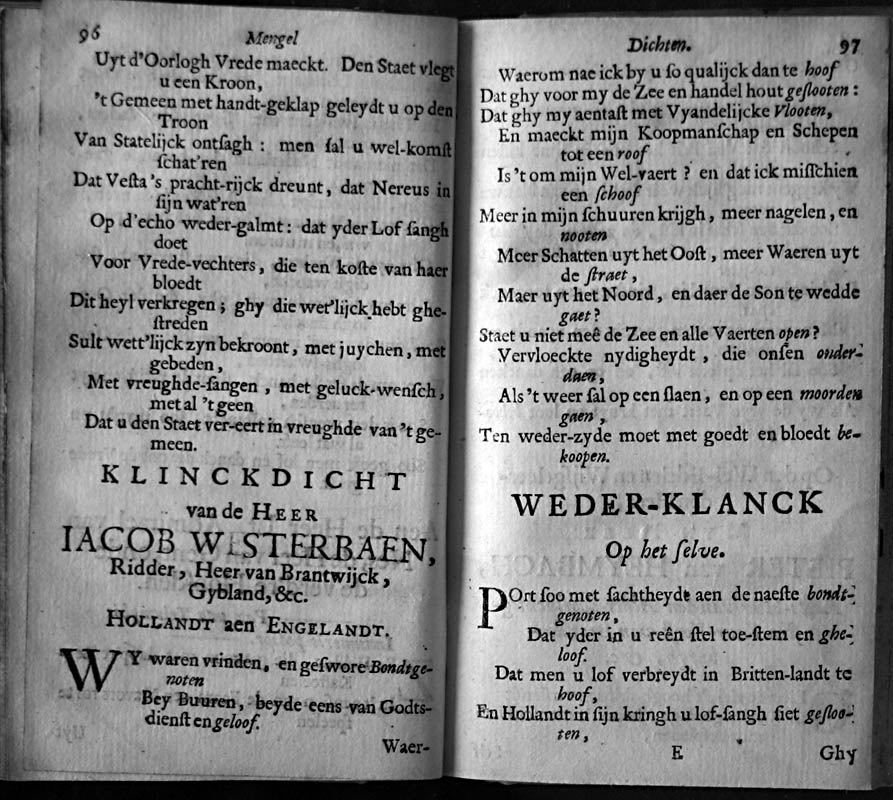 96
Mengel
Uyt d'Oorlogh Vrede maeckt. Den Staet vlegt
u een Kroon,
't Gemeen met handt-geklap geleydt u op den
Troon
Van Statelijck ontſagh : men ſal u wel-komſt
ſchat'ren
Dat Veſta's pracht-rijck dreunt, dat Nereus in
ſijn wat'ren
Op d'echo weder-galmt: dat yder Lof ſangh
doet
Voor Vrede-vechters, die ten koſte van haer
bloedt
Dit heyl verkregen; ghy die wet'lijck hebt ghe-
ſtreden
Sult wett'lijck zyn bekroont, met juychen, met
gebeden,
Met vreughde-ſangen, met geluck-wenſch,
met al 't geen
Dat u den Staet ver-eert in vreughde van 't ge-
meen.
KLINCKDICHT
van de HEER
IACOB WESTERBAEN,
Ridder, Heer van Brantwijck,
Gybland, &c.
HOLLANDT aen ENGELANDT.
WY waren vrinden, en geſwore Bondtge-
noten
Bey Buuren, beyde eens van Godts-
dienſt en geloof.
Waer-
Dichten.
97
Waerom nae ick by u ſo qualijck dan te hoof
Dat ghy voor my de Zee en handel hout geſlooten :
Dat ghy my aentaſt met Vyandelijcke Vlooten,
En maeckt mijn Koopmanſchap en Schepen
tot een roof
Is 't om mijn Wel-vaert ? en dat ick miſſchien
een ſchoof
Meer in mijn ſchuuren krijgh, meer nagelen, en
nooten
Meer Schatten uyt het Ooſt, meer Waeren uyt
de ſtraet,
Maer uyt het Noord, en daer de Son te wedde
gaet ?
Staet u niet meê de Zee en alle Vaerten open ?
Vervloeckte nydigheydt, die onſen onder-
daen,
Als 't weer ſal op een ſlaen, en op een moorden
gaen,
Ten weder-zyde moet met goedt en bloedt be-
koopen.
WEDER-KLANCK
Op het ſelve.
POrt ſoo met ſachtheydt aen de naeſte bondt-
genoten,
Dat yder in u reên ſtel toe-ſtem en ghe-
loof.
Dat men u lof verbreydt in Britten-landt te
hoof,
En Hollandt in ſijn kringh u lof-ſangh ſiet geſloo-
ten,
E
Ghy